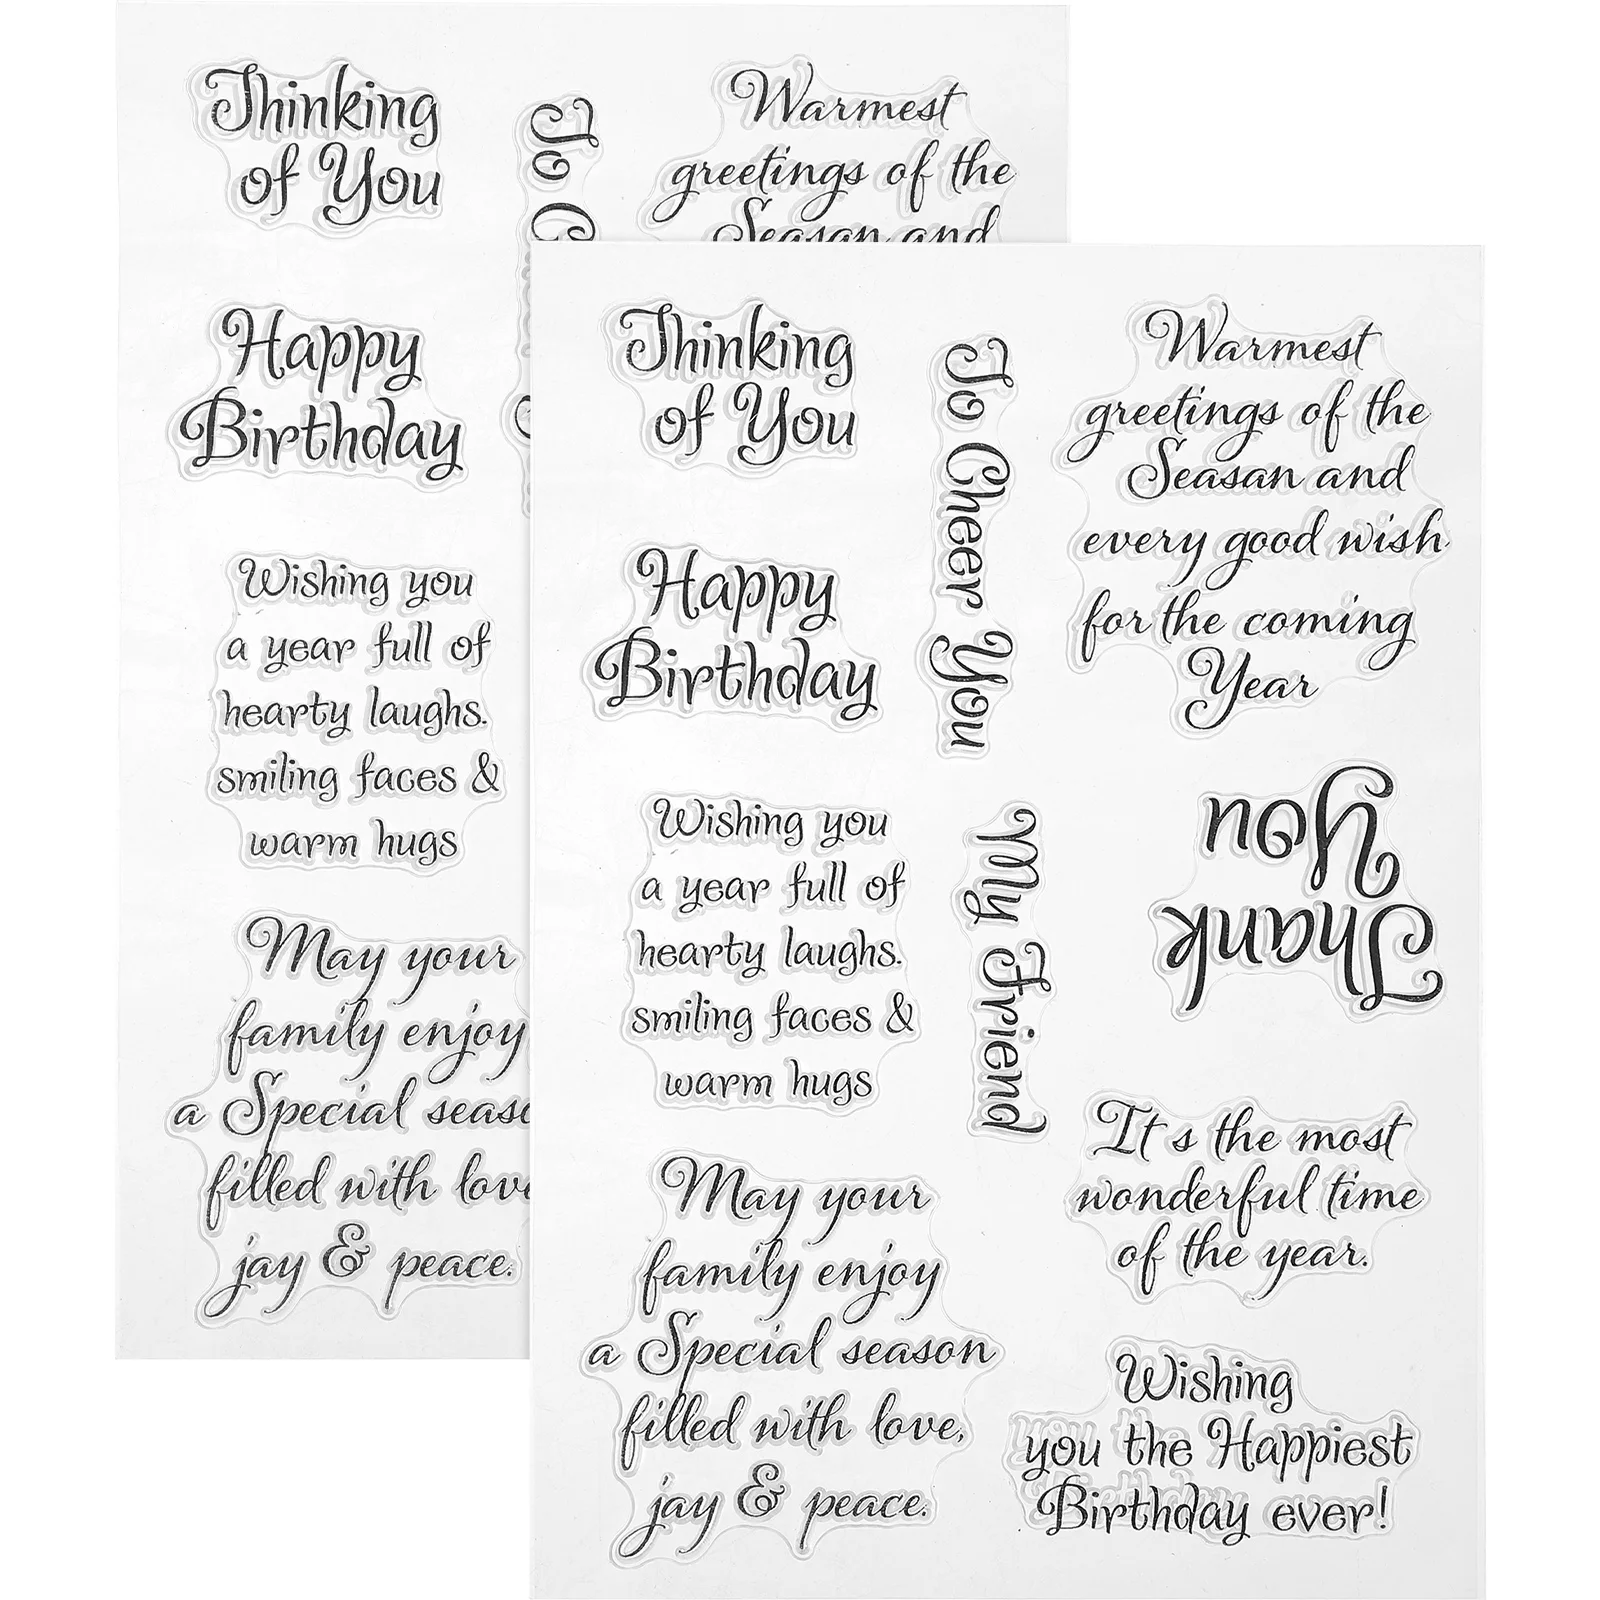 Thinking
of You
To C
Warmest
greetings of the
Seasan and
Happy
Birthday
Wishing you
a year full of
hearty laughs.
smiling faces &
warm hugs
May your
family enjoy
a Special seaso
filled with lov
jay & peace.
Thinking
of You
To Cheer You
Warmest
greetings of the
Seasan and
every good wish
for the coming
Year
Happy
Birthday
Thank
you
Wishing you
a year full of
hearty laughs.
smiling faces &
warm hugs
My Friend
It s the most
wonderful time
of the year.
May your
family enjoy
a Special season
filled with love,
jay & peace.
Wishing
you the Happiest
Birthday ever!